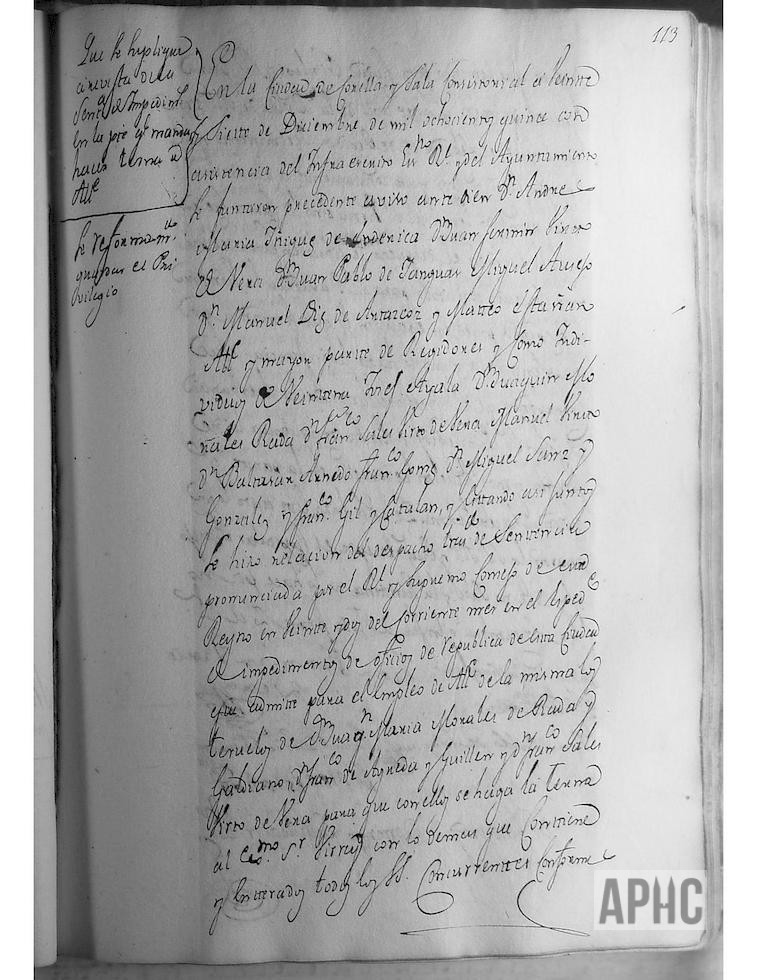 113
Que se suplique
a revista de la
Sent.ª de Impedim.tos
en la pte q.e manda
hacer terna de
Alc.e
Se reforma
guardar el Pri
vilegio
En la Ciudad de Corella y Sala Consistorial a veinte
y Siete de Diciembre de mil ochocientos quince con
asistencia del Infraescrito Esn.no R.l y del Ayuntamiento
Se juntaron precedente aviso ante diem D.n Andres
Maria Iñiguez de D.n Juan Fermin Virto
de Vera D.n Juan Pablo de Miguel
D.n Manuel Diz de Antoñanz y Matteo
Alc.e y mayor parte de Rexidores y Como Indi-
viduos de Veintena Josef Ayala D.n Juaquin Mo
rales Rada D.n Fran.co Sales Virto de Vera Manuel Virto
D.n Baltasar Arnedo Fran.co D.n Miguel Sanz y
Gonzalez y Fran.co Gil y Catalan, y estando asi juntos
Se hizo relacion del despacho de Sentencia
pronunciada por el R.l y Supremo Consejo de este
Reyno en veinte y dos del corriente mes en el Exped.e
de impedimentos de oficios de republica de esta Ciudad
que admite para el Empleo de Alc.e de la misma los
teruelos de D.n Juaq.n Maria Morales de Rada y
D.n Fran.co de Agreda y Guillen y D.n Fran.co Sales
Virto de Vera para que con ellos se haga la terna
al Exc.mo S.r Virrey con lo demas que Contiene
y Enterados todos los SS. Concurrentes Conforme
APHC